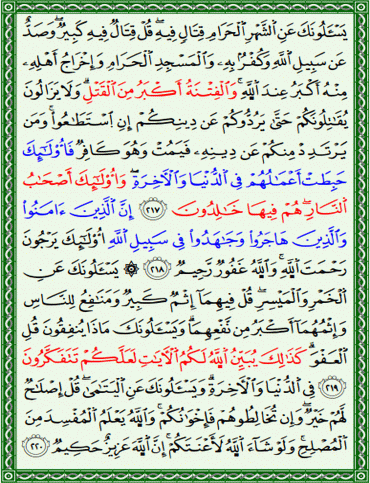 يَسْـَٔلُونَكَ عَنِ ٱلشَّهْرِ ٱلْحَرَامِ قِتَالٍ فِيهِ ۖ قُلْ قِتَالٌ فِيهِ كَبِيرٌ ۖ وَصَدٌّ
عَن سَبِيلِ ٱللَّهِ وَكُفْرٌۢ بِهِۦ وَٱلْمَسْجِدِ ٱلْحَرَامِ وَإِخْرَاجُ أَهْلِهِۦ
مِنْهُ أَكْبَرُ عِندَ ٱللَّهِ ۚ وَٱلْفِتْنَةُ أَكْبَرُ مِنَ ٱلْقَتْلِ ۗ وَلَا يَزَالُونَ
يُقَٰتِلُونَكُمْ حَتَّىٰ يَرُدُّوكُمْ عَن دِينِكُمْ إِنِ ٱسْتَطَٰعُوا۟ ۚ وَمَن
يَرْتَدِدْ مِنكُمْ عَن دِينِهِۦ فَيَمُتْ وَهُوَ كَافِرٌ فَأُو۟لَٰٓئِكَ
حَبِطَتْ أَعْمَٰلُهُمْ فِى ٱلدُّنْيَا وَٱلْـَٔاخِرَةِ ۖ وَأُو۟لَٰٓئِكَ أَصْحَٰبُ
ٱلنَّارِ ۖ هُمْ فِيهَا خَٰلِدُونَ ٢١٧ إِنَّ ٱلَّذِينَ ءَامَنُوا۟
وَٱلَّذِينَ هَاجَرُوا۟ وَجَٰهَدُوا۟ فِى سَبِيلِ ٱللَّهِ أُو۟لَٰٓئِكَ يَرْجُونَ
رَحْمَتَ ٱللَّهِ ۚ وَٱللَّهُ غَفُورٌ رَّحِيمٌ ٢١٨ ۞ يَسْـَٔلُونَكَ عَنِ
ٱلْخَمْرِ وَٱلْمَيْسِرِ ۖ قُلْ فِيهِمَآ إِثْمٌ كَبِيرٌ وَمَنَٰفِعُ لِلنَّاسِ
وَإِثْمُهُمَآ أَكْبَرُ مِن نَّفْعِهِمَا ۗ وَيَسْـَٔلُونَكَ مَاذَا يُنفِقُونَ قُلِ
ٱلْعَفْوَ ۗ كَذَٰلِكَ يُبَيِّنُ ٱللَّهُ لَكُمُ ٱلْـَٔايَٰتِ لَعَلَّكُمْ تَتَفَكَّرُونَ
٢١٩ فِى ٱلدُّنْيَا وَٱلْـَٔاخِرَةِ ۗ وَيَسْـَٔلُونَكَ عَنِ ٱلْيَتَٰمَىٰ ۖ قُلْ إِصْلَاحٌ
لَّهُمْ خَيْرٌ ۖ وَإِن تُخَالِطُوهُمْ فَإِخْوَٰنُكُمْ ۚ وَٱللَّهُ يَعْلَمُ ٱلْمُفْسِدَ مِنَ
ٱلْمُصْلِحِ ۚ وَلَوْ شَآءَ ٱللَّهُ لَأَعْنَتَكُمْ ۚ إِنَّ ٱللَّهَ عَزِيزٌ حَكِيمٌ ٢٢٠